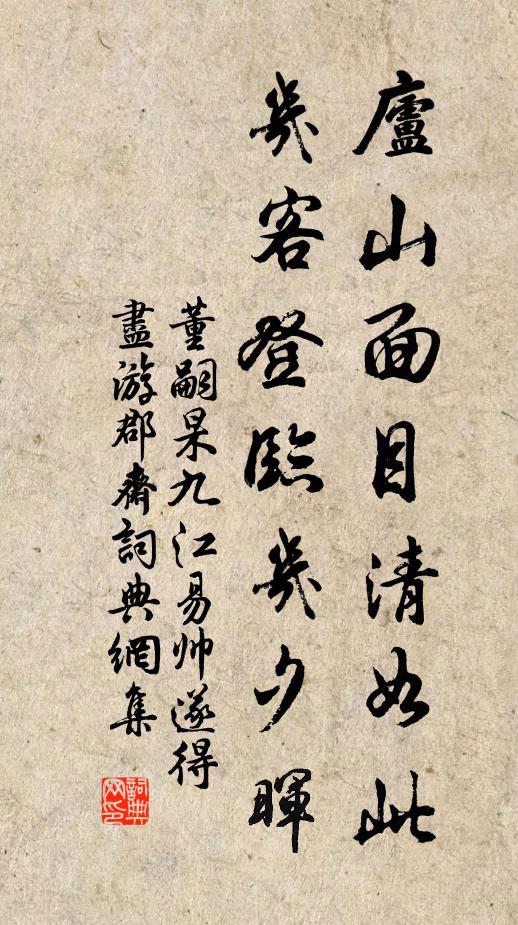 廬山面目清如此
幾客登臨幾夕暉
董嗣杲九江易帅遂得
盡游郡齋詞典網集
詞典网印